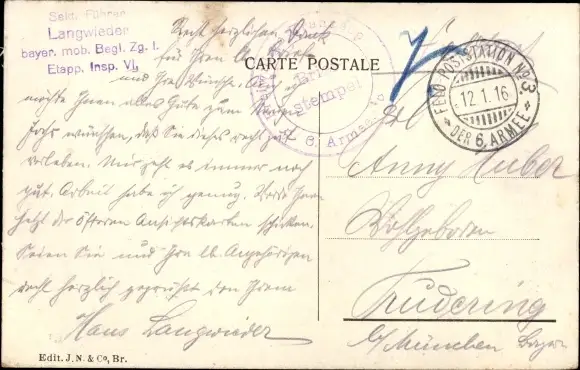 Sekt. Führer
Langwieder
bayer. mob. Begl. Zg. I.
Etapp. Insp. VI.
CARTE POSTALE
Brief-
stempel
6. Armee
FELD-POSTSTATION No. 3
12.1.16
DER 6. ARMEE
Recht herzlichen Dank
für Ihren lb. Brief
und Ihre Wünsche. Auch ich
möchte Ihnen alles Gute zum Neuen
Jahr wünschen, daß Sie dieses recht gut
verleben. Mir geht es immer noch
gut. Arbeit habe ich genug. Werde Ihnen
jetzt des öfteren Ansichtskarten schicken.
Seien Sie und Ihre lb. Angehörigen
recht herzlich gegrüßt von Ihrem
Hans Langwieder
Feldpost
Frl.
Anny Huber
Wohlgeboren
Trudering
b/München Bayern
Edit. J. N. & Co, Br.